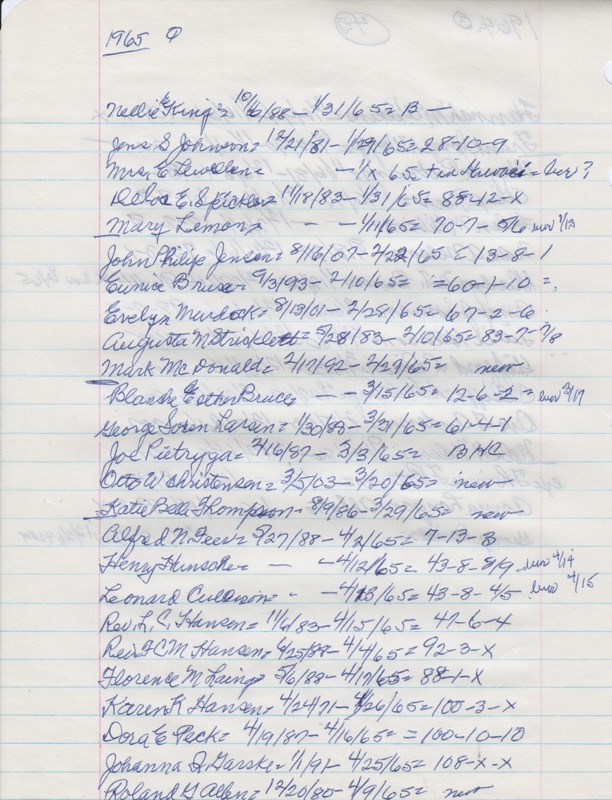 1965
Nellie E King = 10/6/88 - 1/31/65 = B —
Jens S Johnson = 12/21/81 - 1/29/65 = 28-10-9
Mrs E Lewellen = - 1/x 65
Delos E. Spicker = 11/18/83 - 1/31/65 = 85-12-x
Mary Lemon = - - 4/11/65 = 70-7- 5/6
John Philip Jensen = 8/16/07 - 2/22/65 = 13-8-1
Eunice Bruse = 9/3/93 - 2/10/65 = = 60-1-10 =
Evelyn Murdock = 8/13/01 - 2/28/65 = 67-2-6
Augusta N Stricklett = 5/28/83 - 2/10/65 = 83-7-7/8
Mark McDonald = 2/17/92 - 2/27/65 = new
Blanche Esther Bruce - - 3/15/65 = 12-6-2 = 3/17
George Soren Larsen = 1/30/83 - 3/21/65 = 61-4-1
Joe Pietryga = 2/16/87 - 3/3/65 = BHC
Otto W Christensen = 3/5/03 - 3/20/65 = new
Katie Bell Thompson - 8/9/86 - 3/29/65 = new
Alfred N 5/27/88 - 4/2/65 = 7-13-B
Henry - - 4/12/65 = 43-8-8/9 4/14
Leonard - - 4/13/65 = 43-8-4/5 4/15
Rev. L. C. Hansen = 11/6/83 - 4/15/65 = 47-6-4
Rev F C M Hansen = - 4/4/65 = 92-3-x
Florence M Laing = 5/6/88 - 4/17/65 = 88-1-x
Karen K Hansen = 4/24/71 - 4/26/65 = 100-3-x
Dora E Peck = 4/19/87 - 4/16/65 = = 100-10-10
Johanna J Garska = 1/1/91 - 4/25/65 = 108-x-x
Roland G Allen = 12/20/80 - 4/9/65 = new